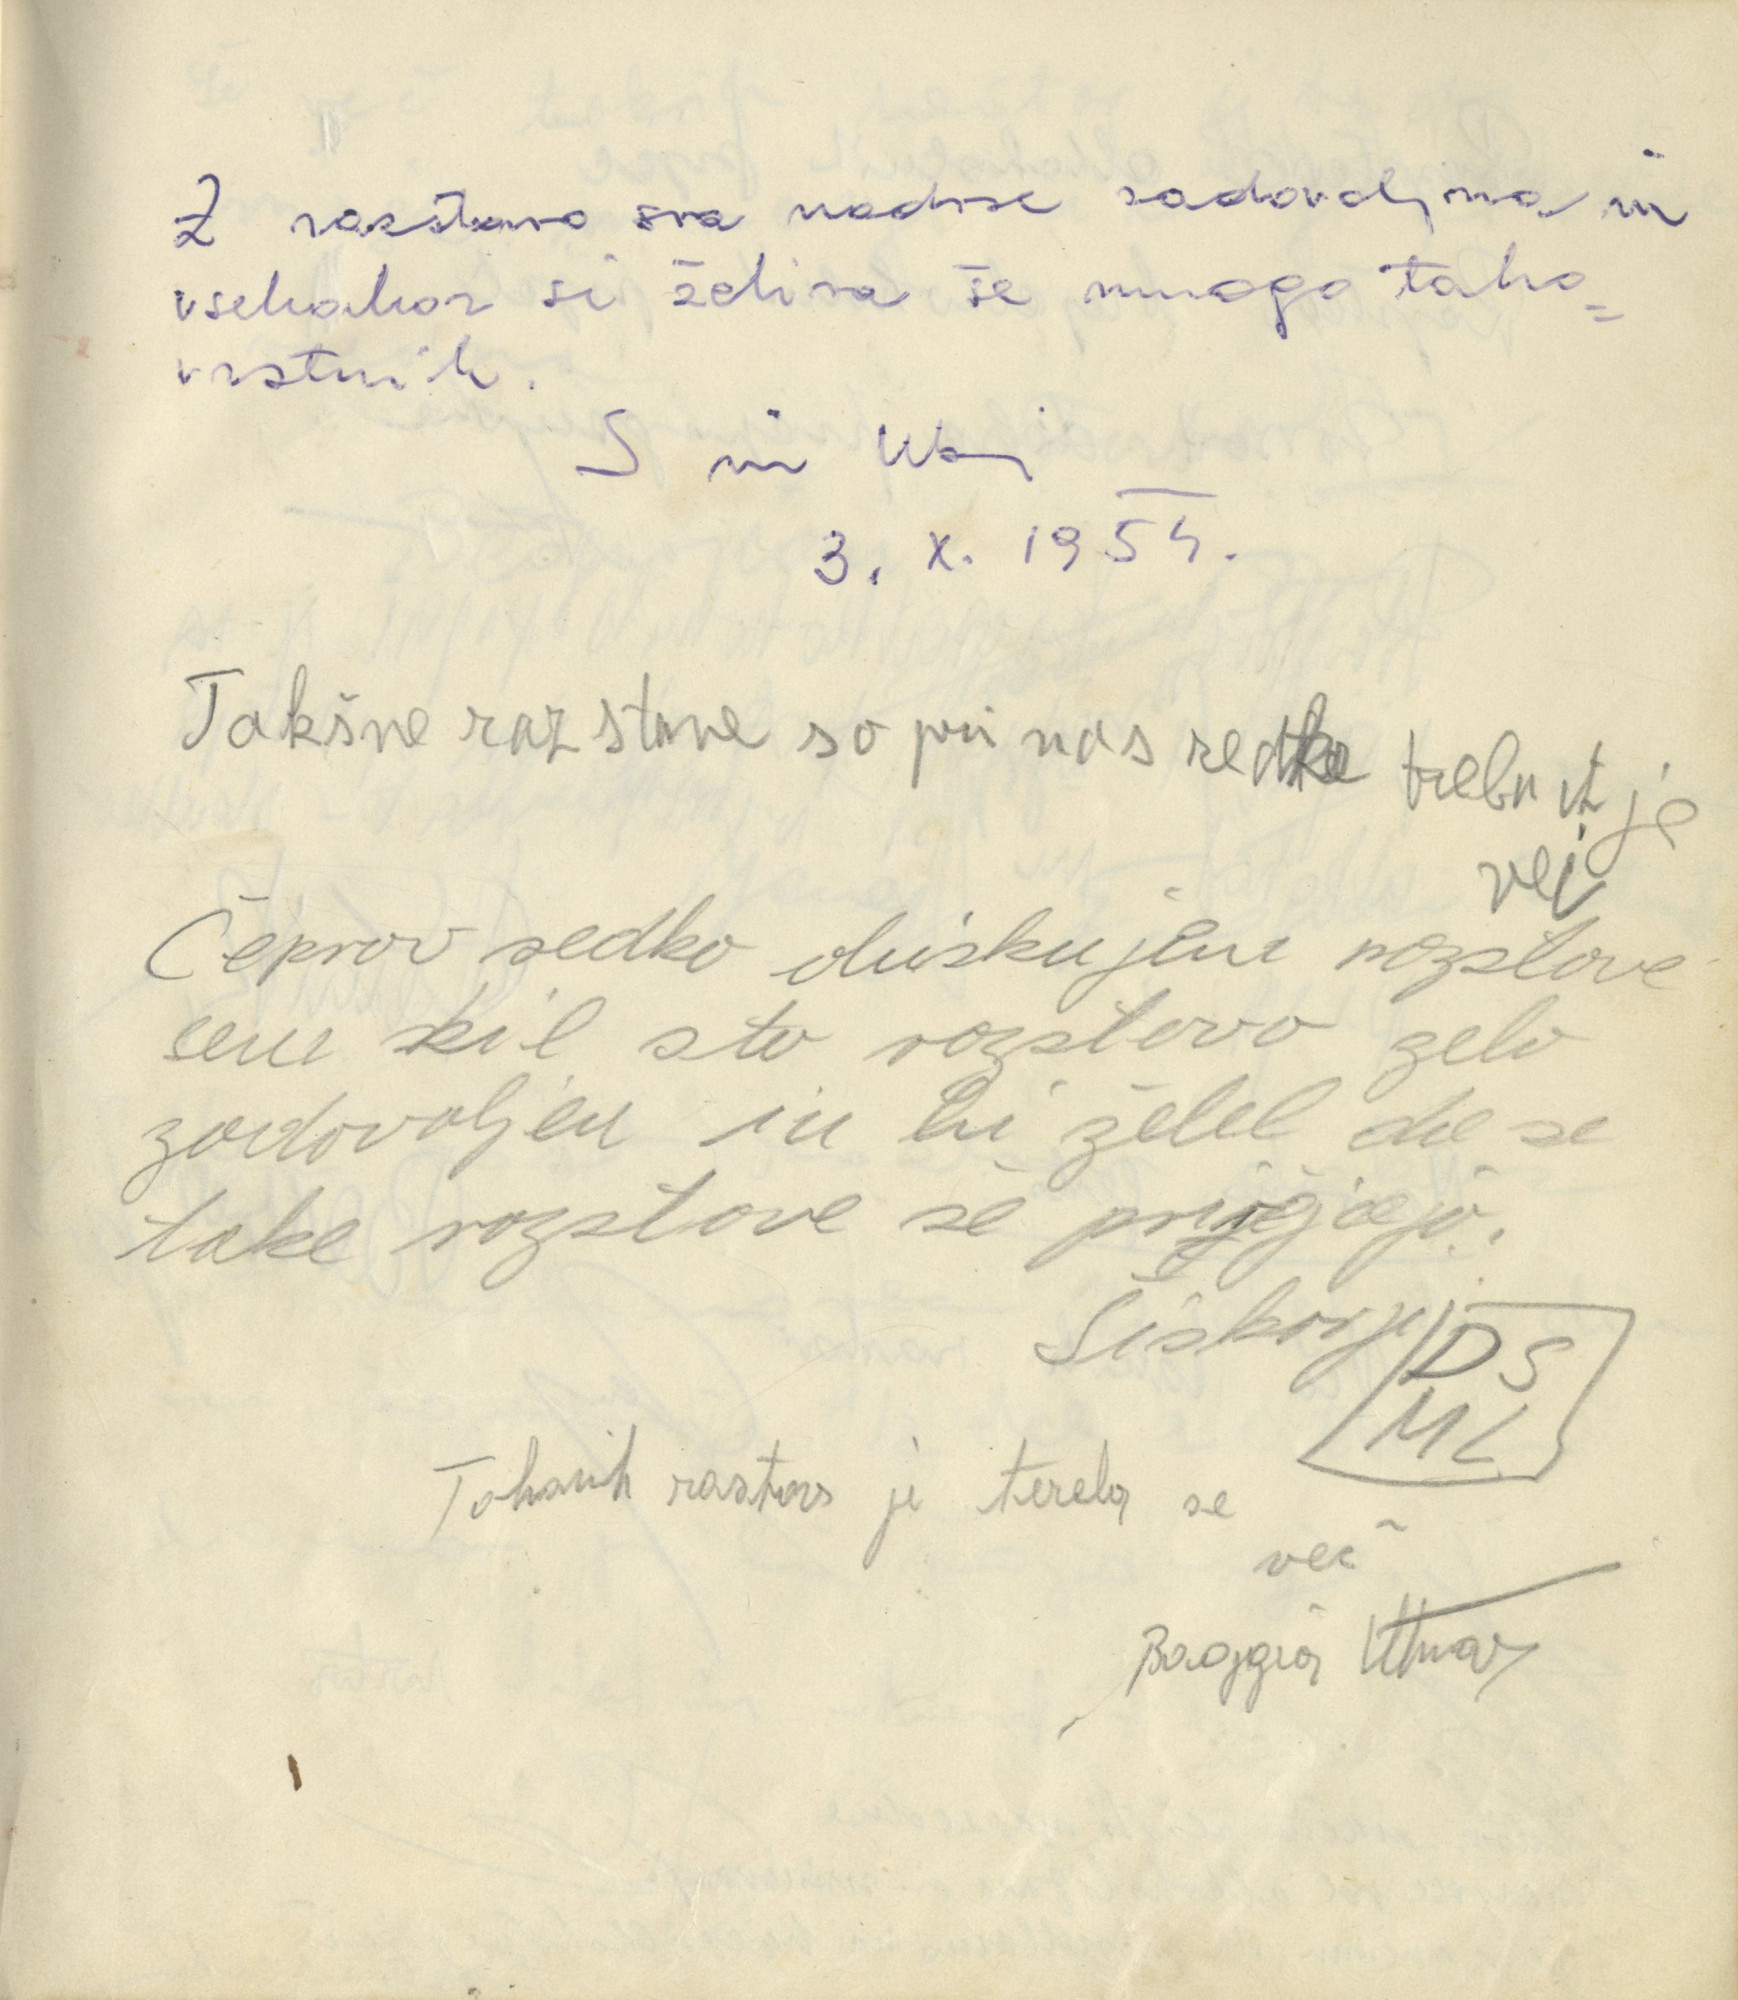 Z razstavo sva nadvse zadovoljna in
vsekakor si želiva še mnogo tako=
vrstnih.
S in
3. X. 1954.
Takšne razstave so pri nas redke treba jih je
več
Čeprav redko obiskujem razstave
sem bil s to razstavo zelo
zadovoljen in bi želel da se
take razstave še prirejajo.
Šiškarji
DS
ML
Takšnih rastav je tereba še
več